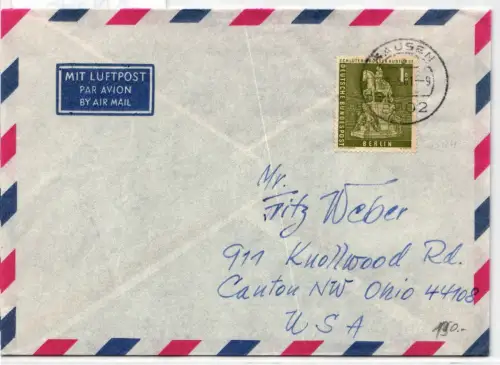 MIT LUFTPOST
PAR AVION
BY AIR MAIL
HAUSEN
-9
502
1
DEUTSCHE BUNDESPOST
BERLIN
Mr.
Fritz Weber
911 Knollwood Rd.
Canton NW Ohio 44108
USA
190.-